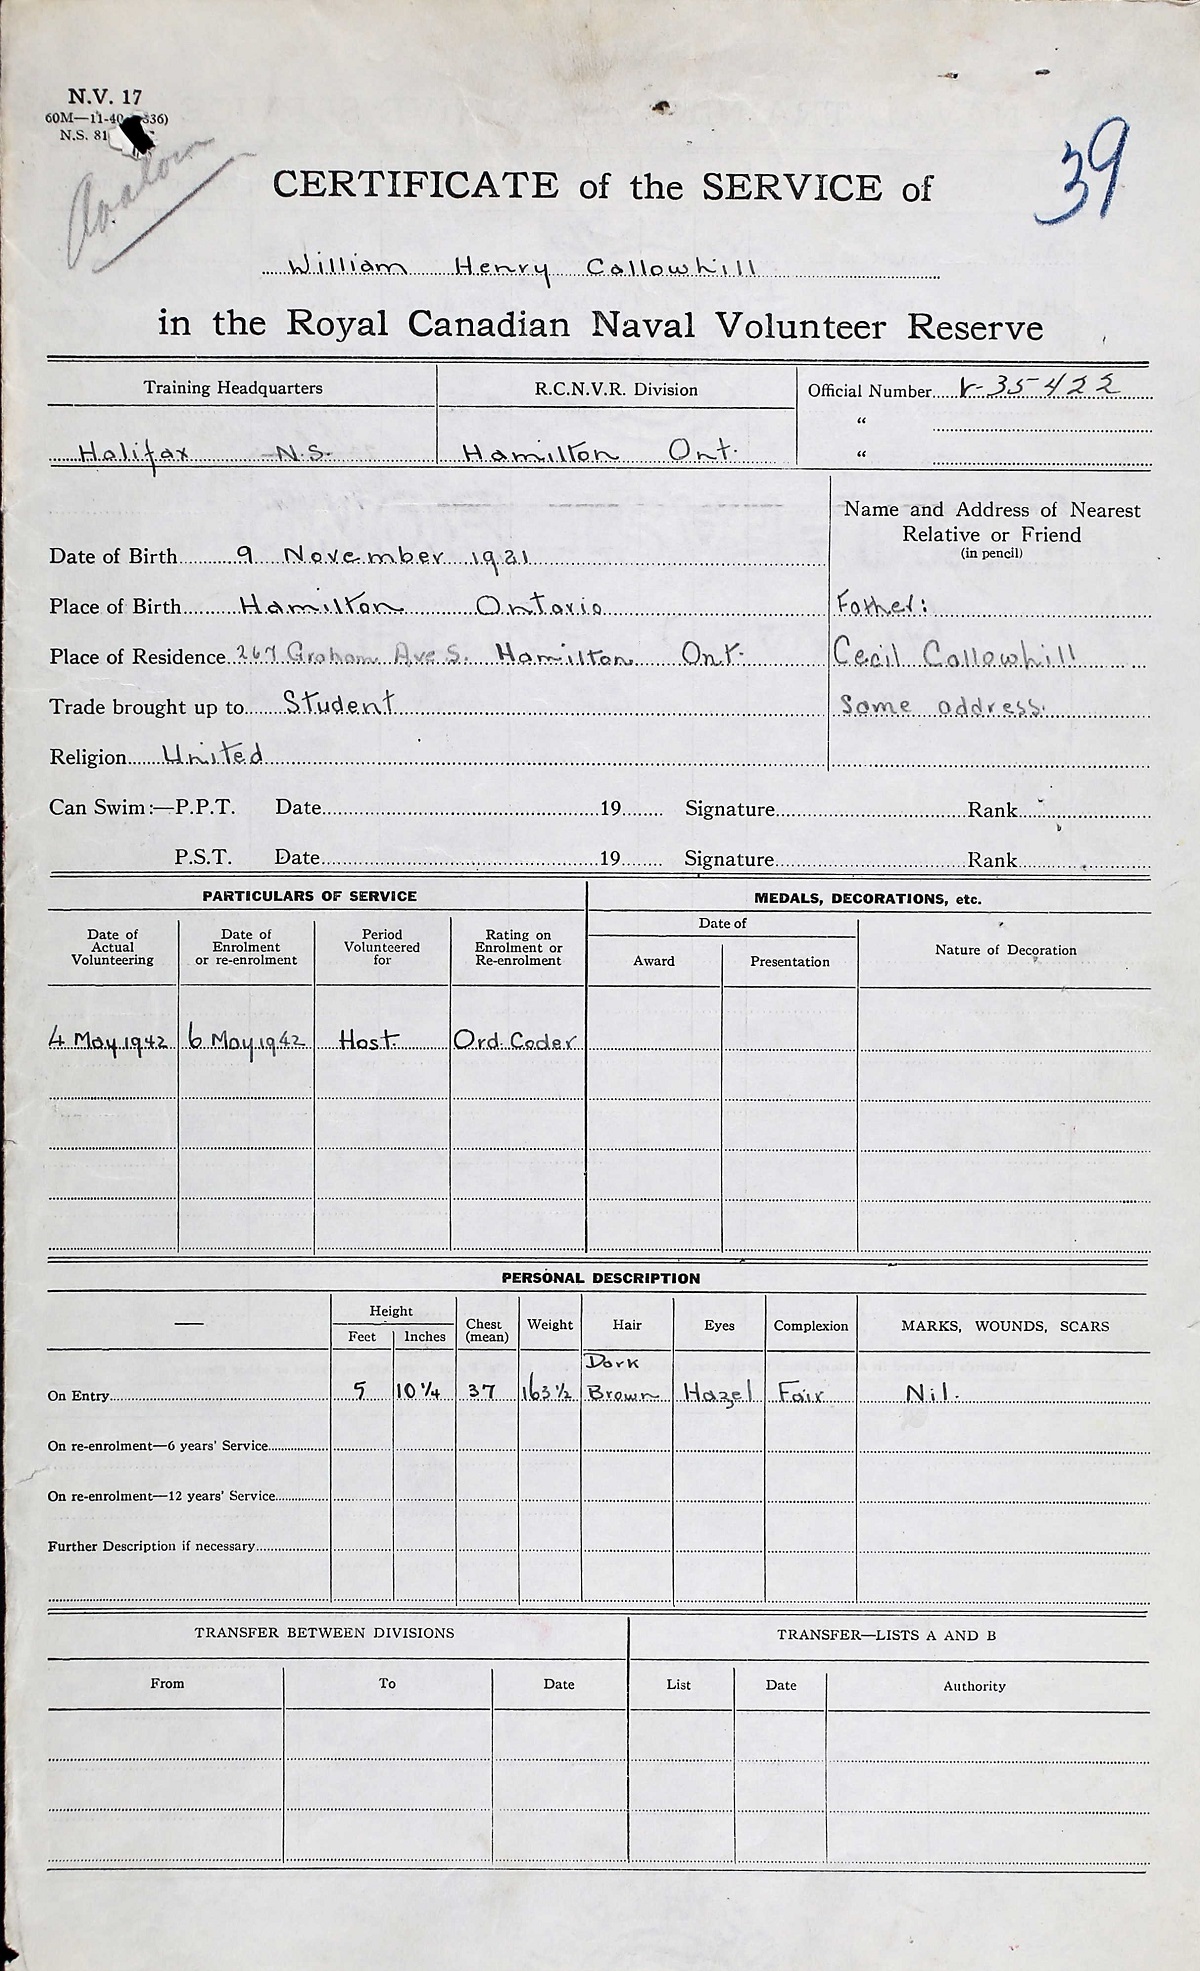 N.V. 17
60M—11-40 336)
N.S. 81
Avalon
39
CERTIFICATE of the SERVICE of
William Henry Callowhill
in the Royal Canadian Naval Volunteer Reserve
Training Headquarters R.C.N.V.R. Division Official Number V-35422
"
Halifax N.S. Hamilton Ont. "
Name and Address of Nearest
Relative or Friend
(in pencil)
Date of Birth 9 November 1921
Place of Birth Hamilton Ontario Father:
Place of Residence 267 Graham Ave S. Hamilton Ont. Cecil Callowhill
Trade brought up to Student Same address.
Religion United
Can Swim:—P.P.T. Date 19 Signature Rank
P.S.T. Date 19 Signature Rank
PARTICULARS OF SERVICE MEDALS, DECORATIONS, etc.
Date of Actual Volunteering Date of Enrolment or re-enrolment Period Volunteered for Rating on Enrolment or Re-enrolment Date of Award Presentation Nature of Decoration
4 May 1942 6 May 1942 Host. Ord. Coder
PERSONAL DESCRIPTION
— Height Feet Inches Chest (mean) Weight Hair Eyes Complexion MARKS, WOUNDS, SCARS
On Entry 5 10 1/4 37 163 1/2 Dark Brown Hazel Fair Nil.
On re-enrolment—6 years' Service
On re-enrolment—12 years' Service
Further Description if necessary
TRANSFER BETWEEN DIVISIONS TRANSFER—LISTS A AND B
From To Date List Date Authority